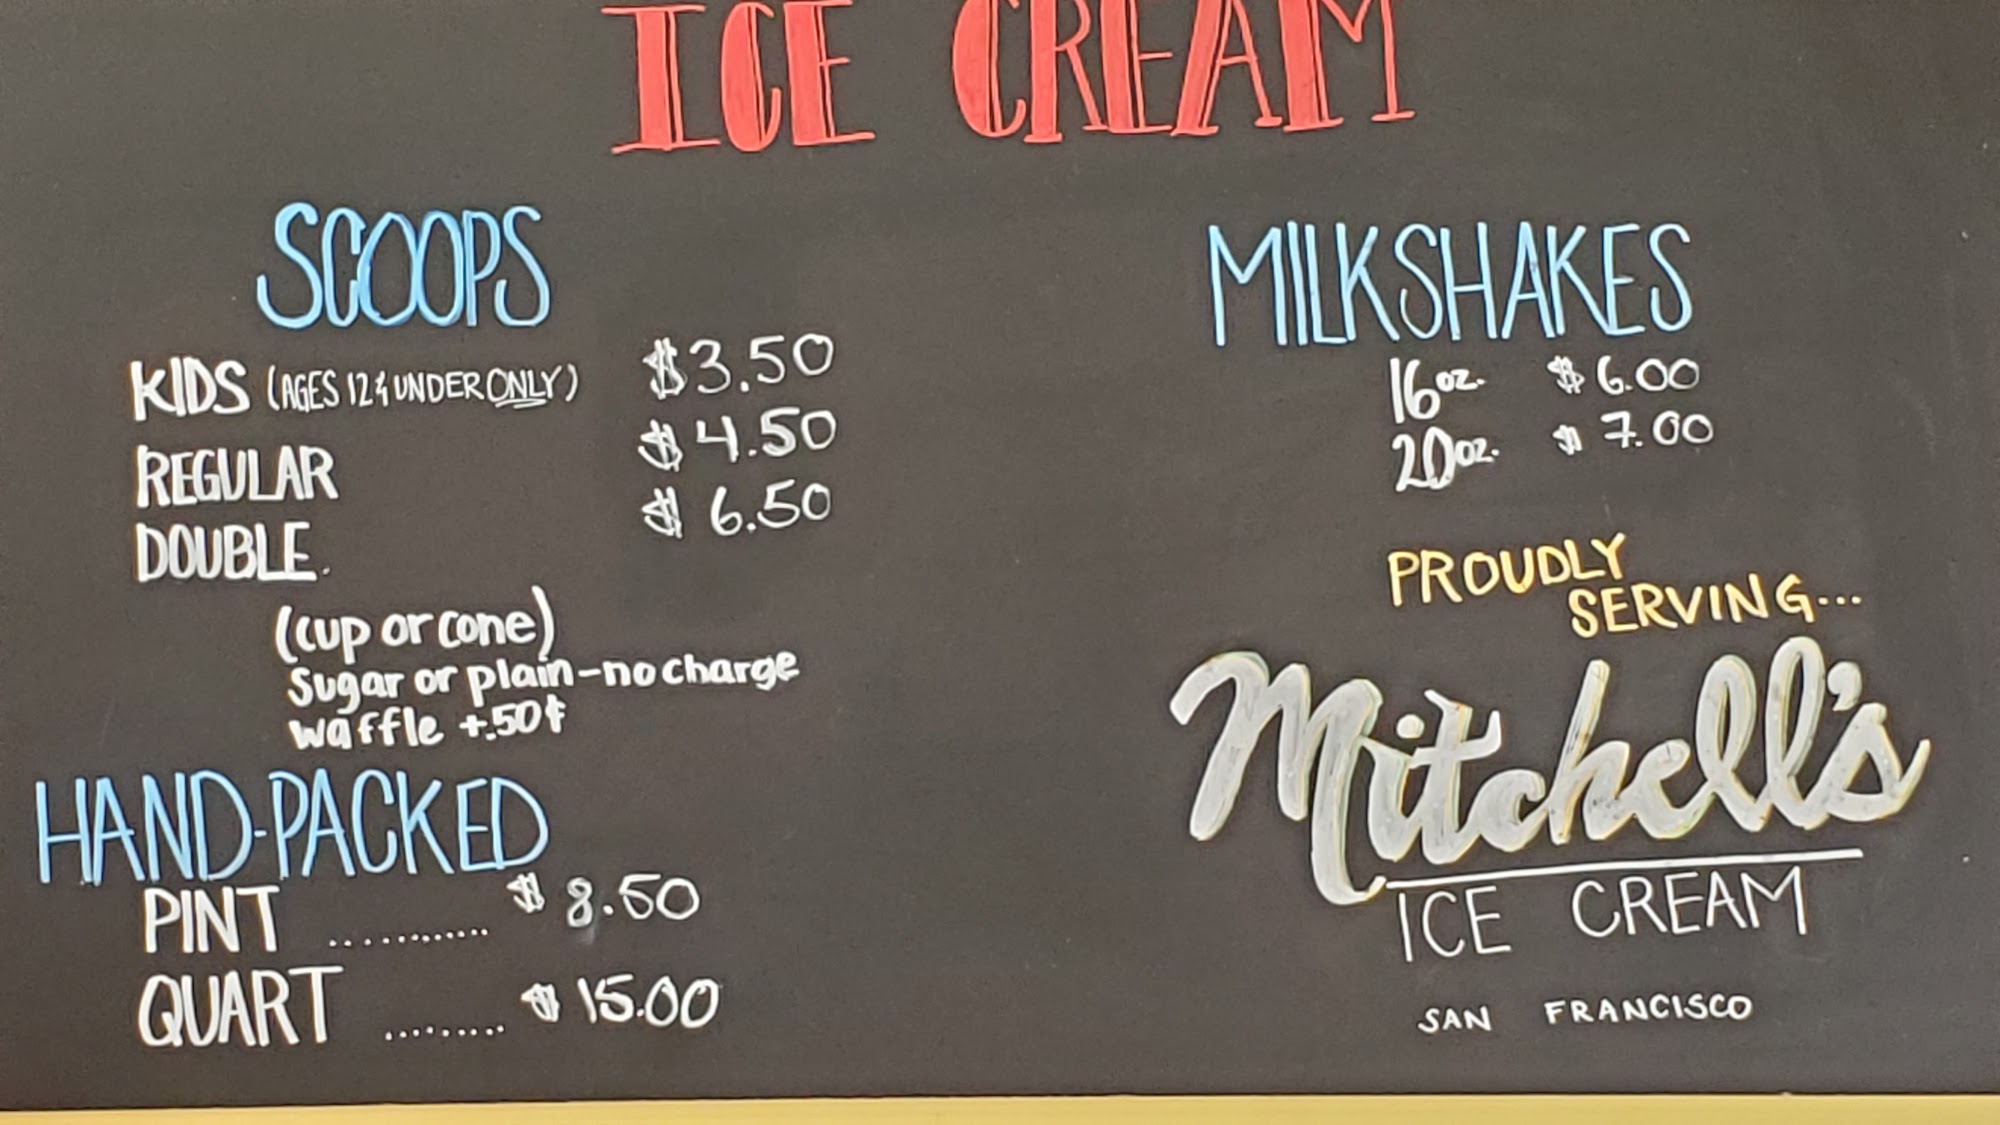 ICE CREAM
SCOOPS
KIDS (AGES 12 & UNDER ONLY) $3.50
REGULAR $4.50
DOUBLE. $6.50
(cup or cone)
Sugar or plain-no charge
waffle +.50¢
HAND-PACKED
PINT ............ $8.50
QUART ......... $15.00
MILKSHAKES
16oz. $6.00
20oz. $7.00
PROUDLY
SERVING...
Mitchell's
ICE CREAM
SAN FRANCISCO